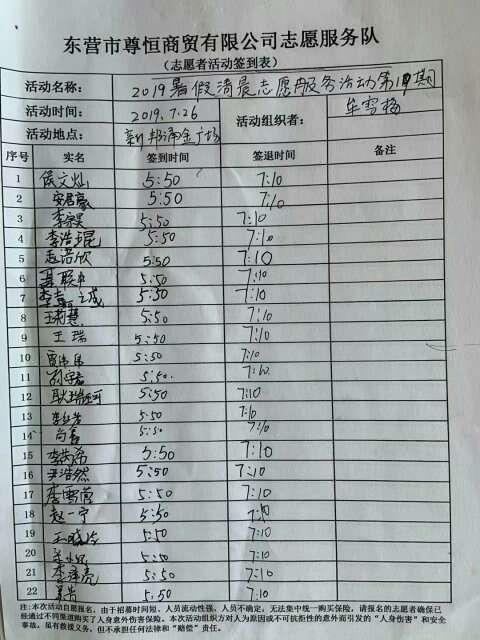 东营市尊恒商贸有限公司志愿服务队
（志愿者活动签到表）
活动名称： 2019暑假清晨志愿服务活动第 期
活动时间： 2019.7.26 活动组织者： 牟雪梅
活动地点： 新邦涌金广场
序号 实名 签到时间 签退时间 备注
1 侯文灿 5:50 7:10
2 安君豪 5:50 7:10
3 李宗昊 5:50 7:10
4 李浩琨 5:50 7:10
5 赵语欣 5:50 7:10
6 5:50 7:10
7 5:50 7:10
8 王莉慧 5:50 7:10
9 王瑞 5:50 7:10
10 5:50 7:10
11 5:50. 7:10.
12 耿瑞珂 5:50 7:10
13 5:50 7:10
14 5:50 7:10
15 李其希 5:50 7:10
16 尹浩然 5:50 7:10
17 李雪萱 5:50 7:10
18 赵一宁 5:50 7:10
19 王晓玲 5:50 7:10
20 5:50 7:10
21 李泽亮 5:50 7:10
22 5:50 7:10
注:本次活动自愿报名，由于招募时间短、人员流动性强、人员不确定，无法集中统一购买保险，请报名的志愿者确保已
经通过不同渠道购买了人身意外伤害保险。本次活动组织方对人为原因或不可抗拒性的意外而引发的“人身伤害”和安全
事故，虽有救援义务，但不承担任何法律和“赔偿”责任。